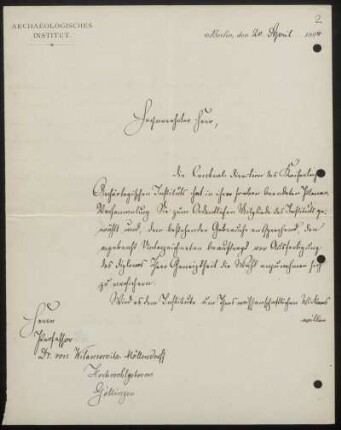 2
ARCHAEOLOGISCHES
INSTITUT.
Berlin, den 20. April 1894
Hochgeehrter Herr,
die Central-Direction des Kaiserlich
Archäologischen Instituts hat in ihrer soeben beendeten Plenar-
Versammlung Sie zum Ordentlichen Mitgliede des Instituts ge-
wählt und, dem bestehenden Gebrauche entsprechend, den
ergebenst Unterzeichneten beauftragt vor Ausfertigung
des Diploms Ihrer Geneigtheit die Wahl anzunehmen sich
zu versichern.
Wird es dem Institute um Ihres wissenschaftlichen Wirkens
willen
Herrn
Professor
Dr. von Wilamowitz-Möllendorff
Hochwohlgeboren
Göttingen